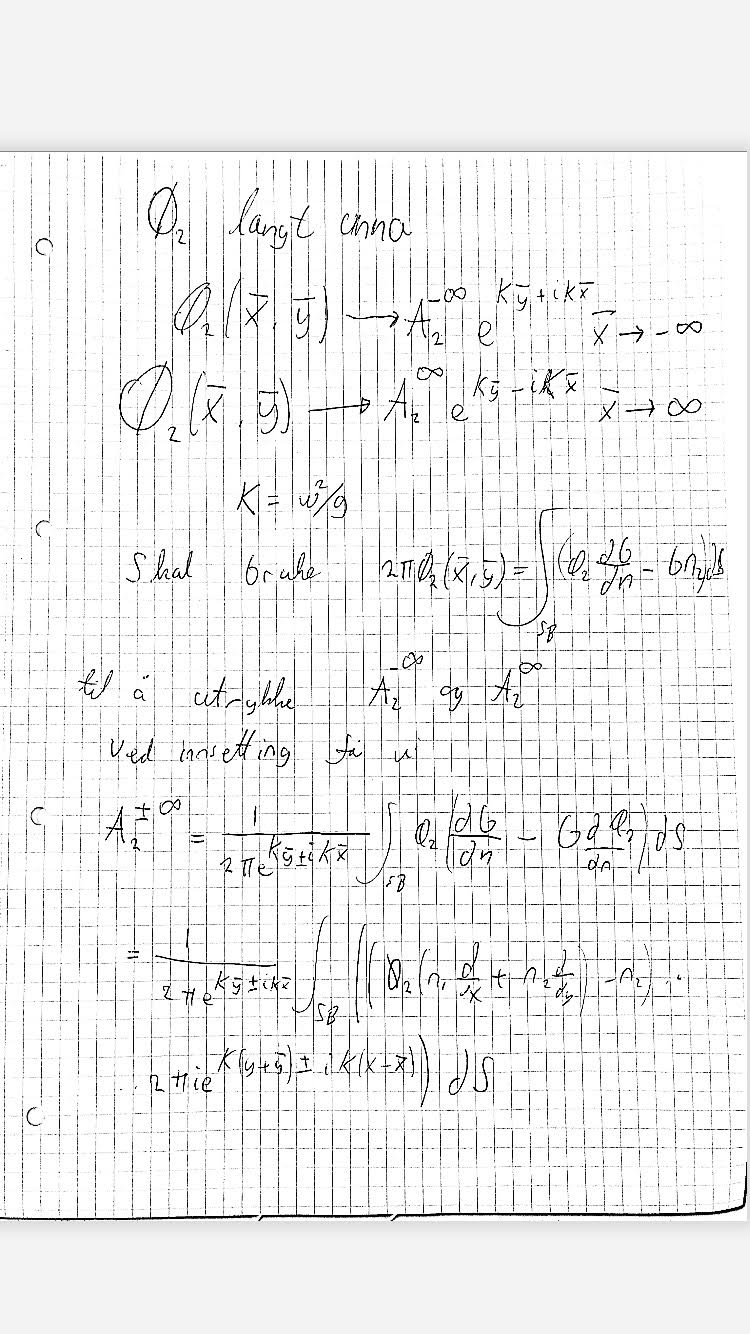 Φ₂ langt unna
Φ₂(x̄, ȳ) → A₂^{-∞} e^{Kȳ+iKx̄} x̄ → -∞
Φ₂(x̄, ȳ) → A₂^{∞} e^{Kȳ-iKx̄} x̄ → ∞
K = ω²/g
Skal bruke 2πΦ₂(x̄, ȳ) = ∫_{SB} (Φ₂ dG/dn - Gn₂) ds
til å utrykke A₂^{-∞} og A₂^{∞}
Ved innsetting får vi
A₂^{±∞} = 1/(2πe^{Kȳ±iKx̄}) ∫_{SB} Φ₂(dG/dn - G dΦ₂/dn) dS
= 1/(2πe^{Kȳ±iKx̄}) ∫_{SB} ((Φ₂(n₁ d/dx + n₂ d/dy) - n₂) ·
2πie^{K(y+ȳ)±iK(x-x̄)}) dS